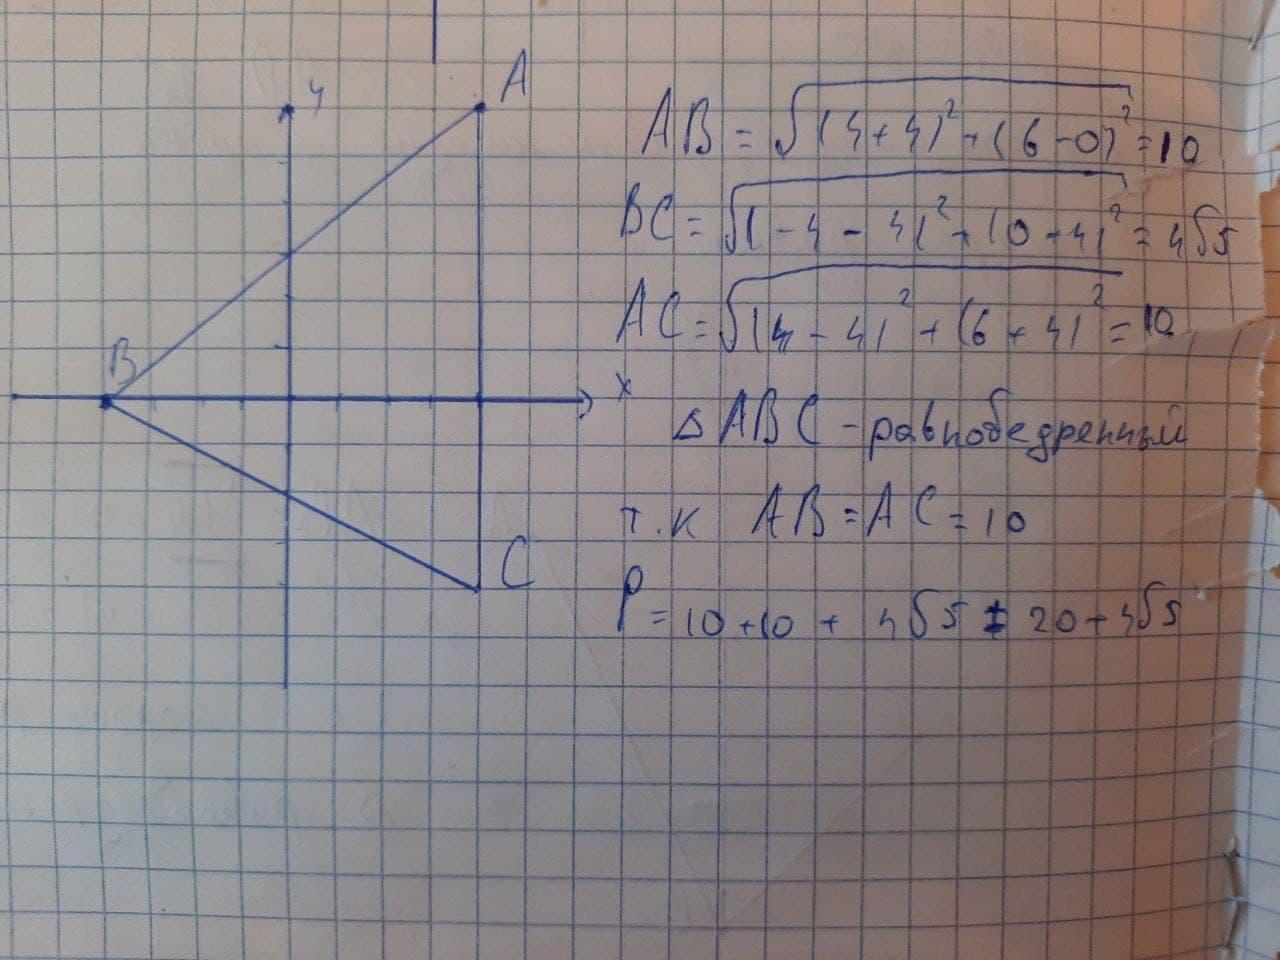 y
A
B
x
C
AB = √(4+4)²+(6-0)² = 10
BC = √(-4-4)²+(0+4)² = 4√5
AC = √(4-4)²+(6+4)² = 10
△ABC - равнобедренный
т.к AB = AC = 10
P = 10+10 + 4√5 = 20+4√5